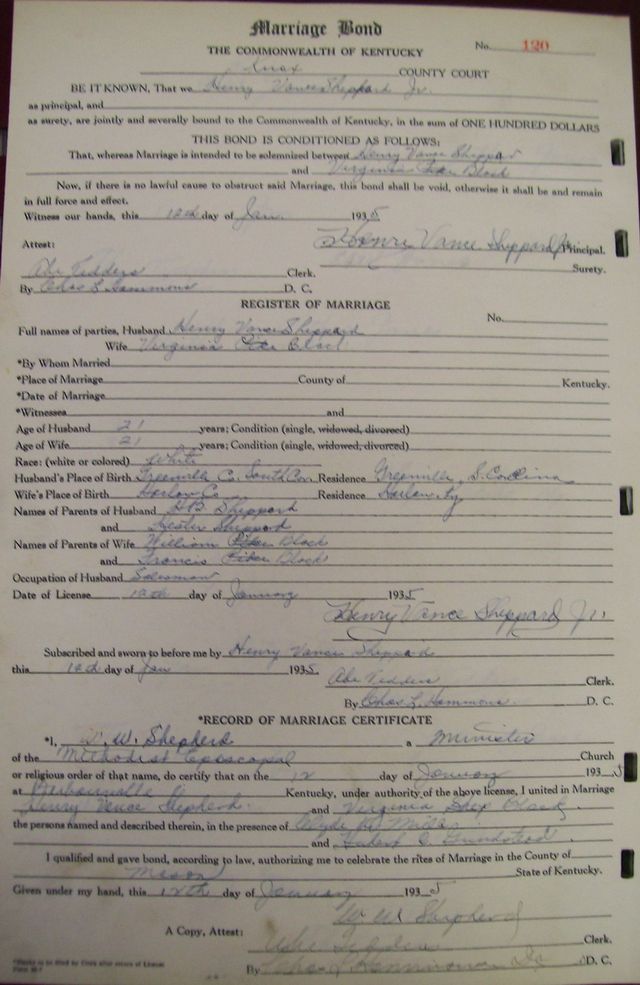 Marriage Bond
THE COMMONWEALTH OF KENTUCKY
No. 120
Knox COUNTY COURT
BE IT KNOWN, That we Henry Vance Sheppard Jr.
as principal, and
as surety, are jointly and severally bound to the Commonwealth of Kentucky, in the sum of ONE HUNDRED DOLLARS
THIS BOND IS CONDITIONED AS FOLLOWS:
That, whereas Marriage is intended to be solemnized between Henry Vance Sheppard
and Virginia Black
Now, if there is no lawful cause to obstruct said Marriage, this bond shall be void, otherwise it shall be and remain
in full force and effect.
Witness our hands, this 12th day of Jan. 1935
Attest: Henry Vance Sheppard Jr. Principal.
Surety.
Clerk.
By Chas L Hammons D. C.
REGISTER OF MARRIAGE
No.
Full names of parties, Husband Henry Vance Sheppard
Wife Virginia Black
*By Whom Married
*Place of Marriage County of Kentucky.
*Date of Marriage
*Witnesses and
Age of Husband 21 years; Condition (single, widowed, divorced)
Age of Wife 21 years; Condition (single, widowed, divorced)
Race: (white or colored) White
Husband's Place of Birth Greenville Co. South Car. Residence Greenville, S. Carolina
Wife's Place of Birth Harlan Co Residence Harlan Ky
Names of Parents of Husband Sheppard
and Hester Sheppard
Names of Parents of Wife William Black
and Francis Black
Occupation of Husband Salesman
Date of License 12th day of January 1935
Henry Vance Sheppard Jr.
Subscribed and sworn to before me by Henry Vance Sheppard
this 12th day of Jan 1935.
Clerk.
By Chas L. Hammons D. C.
*RECORD OF MARRIAGE CERTIFICATE
*I, W. W. Shepherd a Minister
of the Methodist Episcopal Church
or religious order of that name, do certify that on the 12 day of January 1935
at Barbourville Kentucky, under authority of the above license, I united in Marriage
Henry Vance Shepherd and Virginia Black
the persons named and described therein, in the presence of Clyde Mills
and
I qualified and gave bond, according to law, authorizing me to celebrate the rites of Marriage in the County of
Mason State of Kentucky.
Given under my hand, this 12th day of January 1935
W. W. Shepherd
A Copy, Attest:
Clerk.
By D. C.